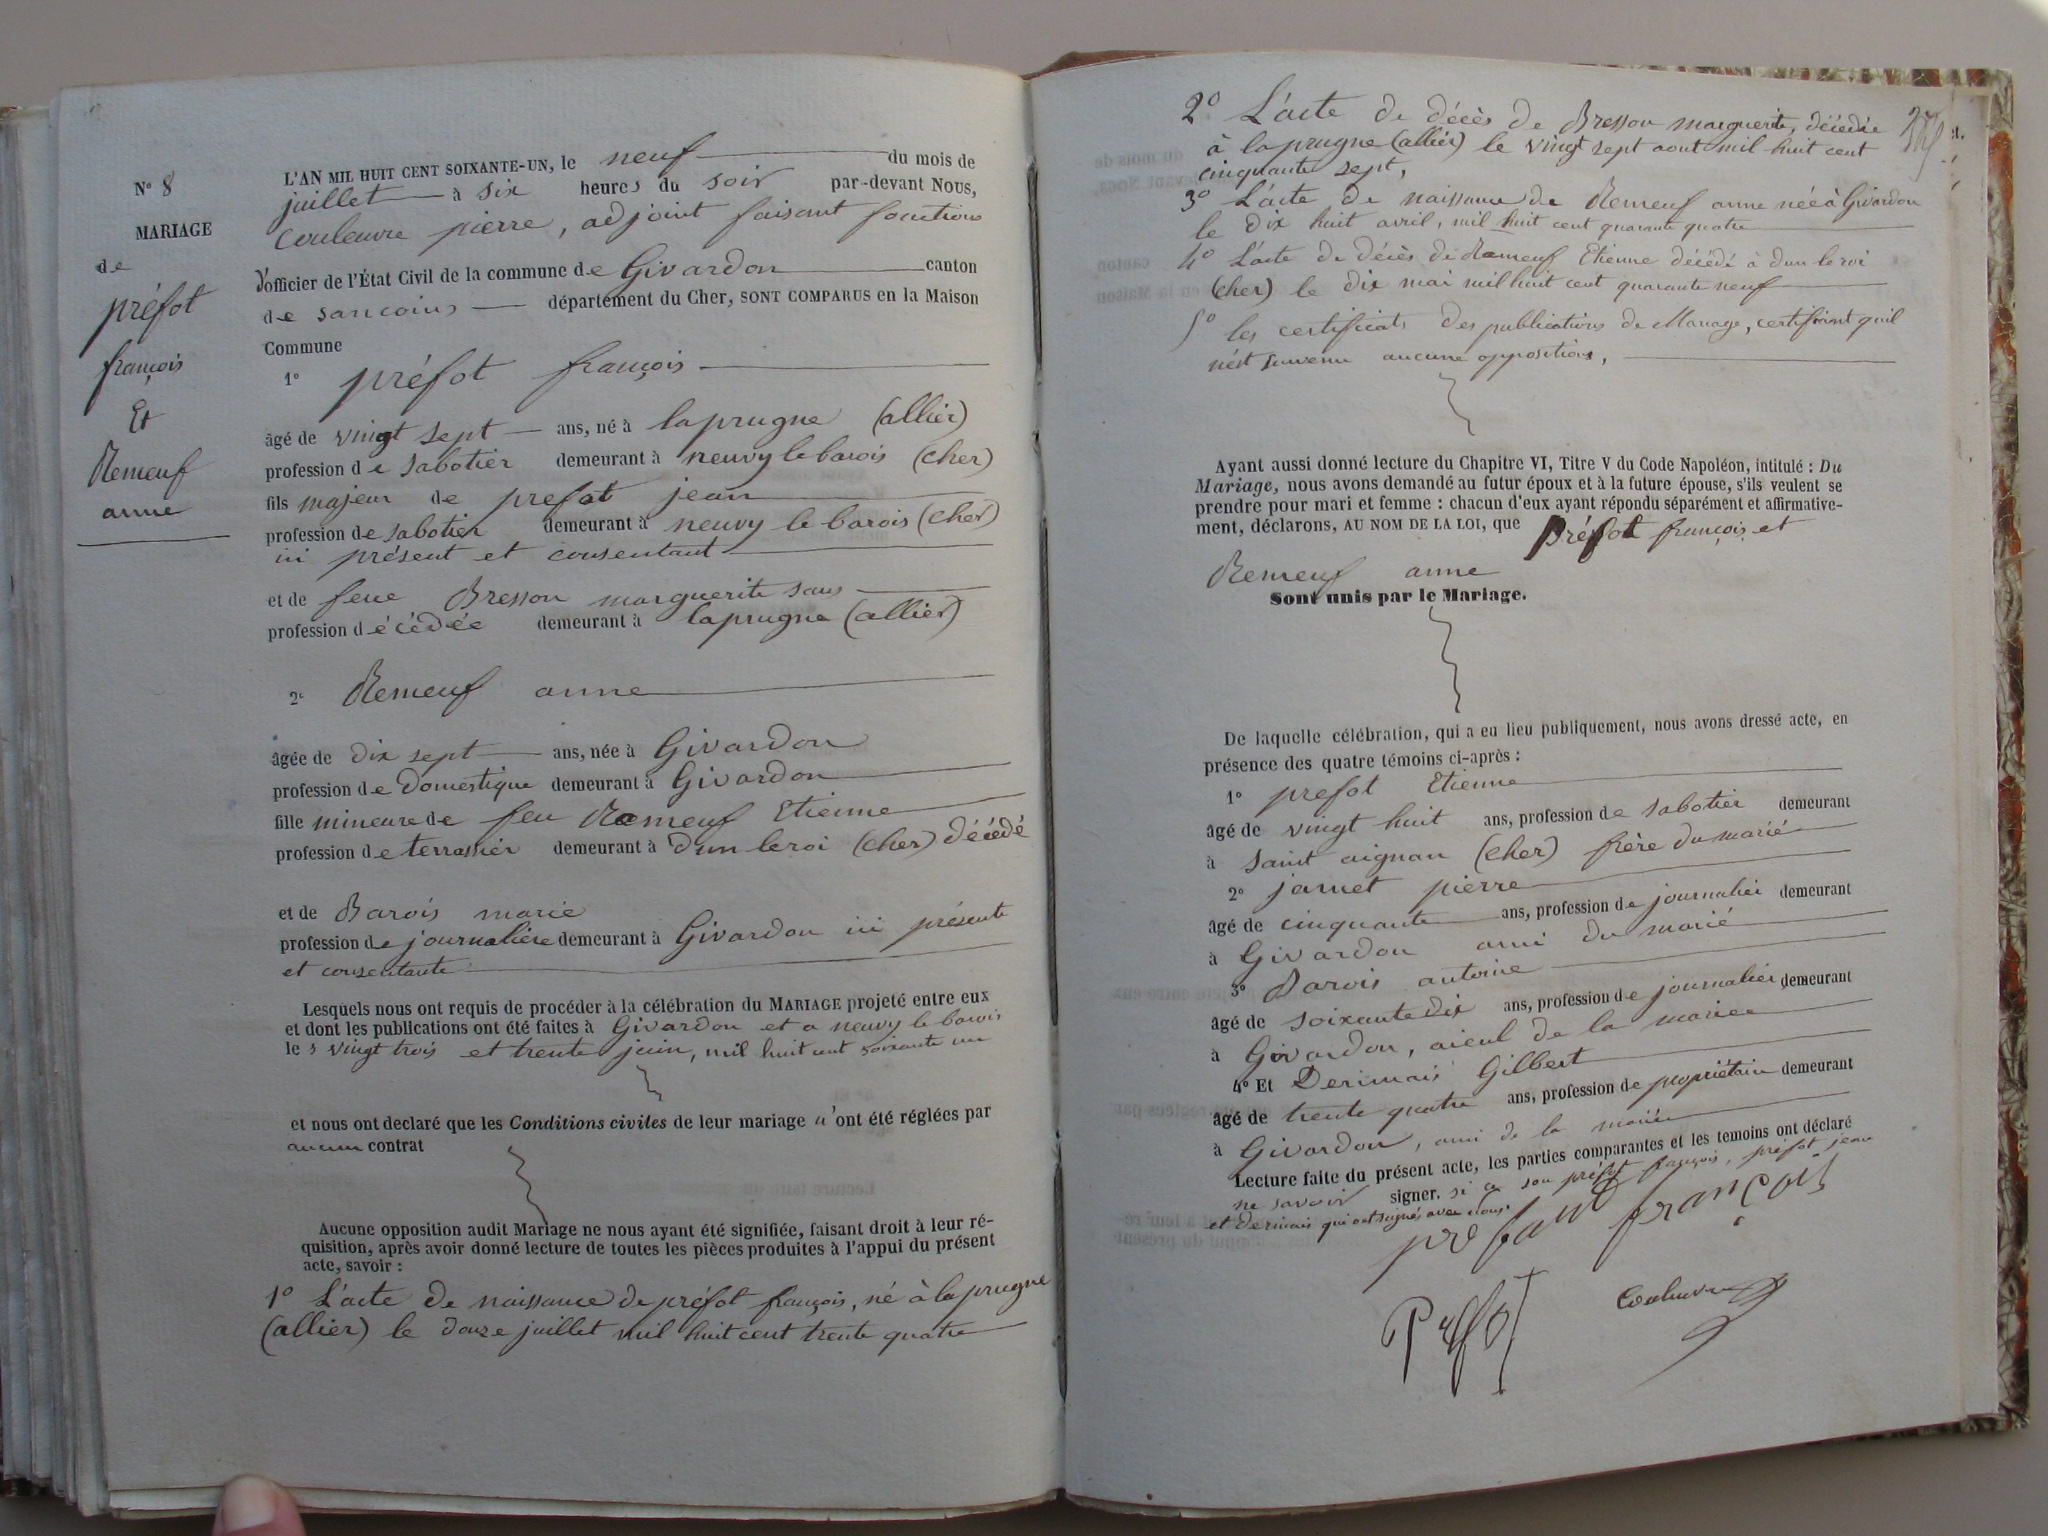 N° 8
MARIAGE
de
préfot
françois
Et
Remeuf
anne
L'AN MIL HUIT CENT SOIXANTE-UN, le neuf du mois de
juillet à six heures du soir par-devant NOUS,
Couleuvre pierre, adjoint faisant fonctions
d'officier de l'État Civil de la commune de Givardon canton
de sancoins département du Cher, SONT COMPARUS en la Maison
Commune
1° préfot françois
âgé de vingt sept ans, né à laprugne (allier)
profession de sabotier demeurant à neuvy le barois (cher)
fils majeur de prefot jean
profession de sabotier demeurant à neuvy le barois (cher)
ici présent et consentant
et de feue Bresson marguerite sans
profession décédée demeurant à laprugne (allier)
2° Remeuf anne
âgée de dix sept ans, née à Givardon
profession de Domestique demeurant à Givardon
fille mineure de feu Remeuf Etienne
profession de terrassier demeurant à Dun le roi (cher) décédé
et de Barois marie
profession de journalière demeurant à Givardon ici présente
et consentante
Lesquels nous ont requis de procéder à la célébration du MARIAGE projeté entre eux
et dont les publications ont été faites à Givardon et a neuvy le barois
les vingt trois et trente juin, mil huit cent soixante un
et nous ont declaré que les Conditions civiles de leur mariage n'ont été réglées par
aucun contrat
Aucune opposition audit Mariage ne nous ayant été signifiée, faisant droit à leur ré-
quisition, après avoir donné lecture de toutes les pièces produites à l'appui du présent
acte, savoir :
1° L'acte de naissance de préfot françois, né à laprugne
(allier) le douze juillet mil huit cent trente quatre
2° L'acte de décès de Bresson marguerite, décédée
à laprugne (allier) le vingt sept aout mil huit cent
cinquante sept,
3° L'acte de naissance de Remeuf anne née à Givardon
le dix huit avril, mil huit cent quarante quatre
4° L'acte de décès de Remeuf Etienne décédé à dun le roi
(cher) le dix mai mil huit cent quarante neuf
5° les certificats des publications de Mariage, certifiant quil
nést survenu aucune opposition,
Ayant aussi donné lecture du Chapitre VI, Titre V du Code Napoléon, intitulé : Du
Mariage, nous avons demandé au futur époux et à la future épouse, s'ils veulent se
prendre pour mari et femme : chacun d'eux ayant répondu séparément et affirmative-
ment, déclarons, AU NOM DE LA LOI, que Préfot françois et
Remeuf anne
Sont unis par le Mariage.
De laquelle célébration, qui a eu lieu publiquement, nous avons dressé acte, en
présence des quatre témoins ci-après :
1° prefot Etienne
âgé de vingt huit ans, profession de sabotier demeurant
à saint aignan (cher) frère du marié
2° jamet pierre
âgé de cinquante ans, profession de journalier demeurant
à Givardon ami du marié
3° Barois antoine
âgé de soixante dix ans, profession de journalier demeurant
à Givardon, aieul de la mariée
4° Et Derimais Gilbert
âgé de trente quatre ans, profession de propriétaire demeurant
à Givardon, ami de la mariée
Lecture faite du présent acte, les parties comparantes et les temoins ont déclaré
ne savoir signer. si ce son préfot françois, préfot jean
et derimais qui ont signés avec nous.
prefaud françois
Prefot
Couleuvre